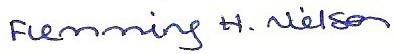 Flemming H. Nielsen